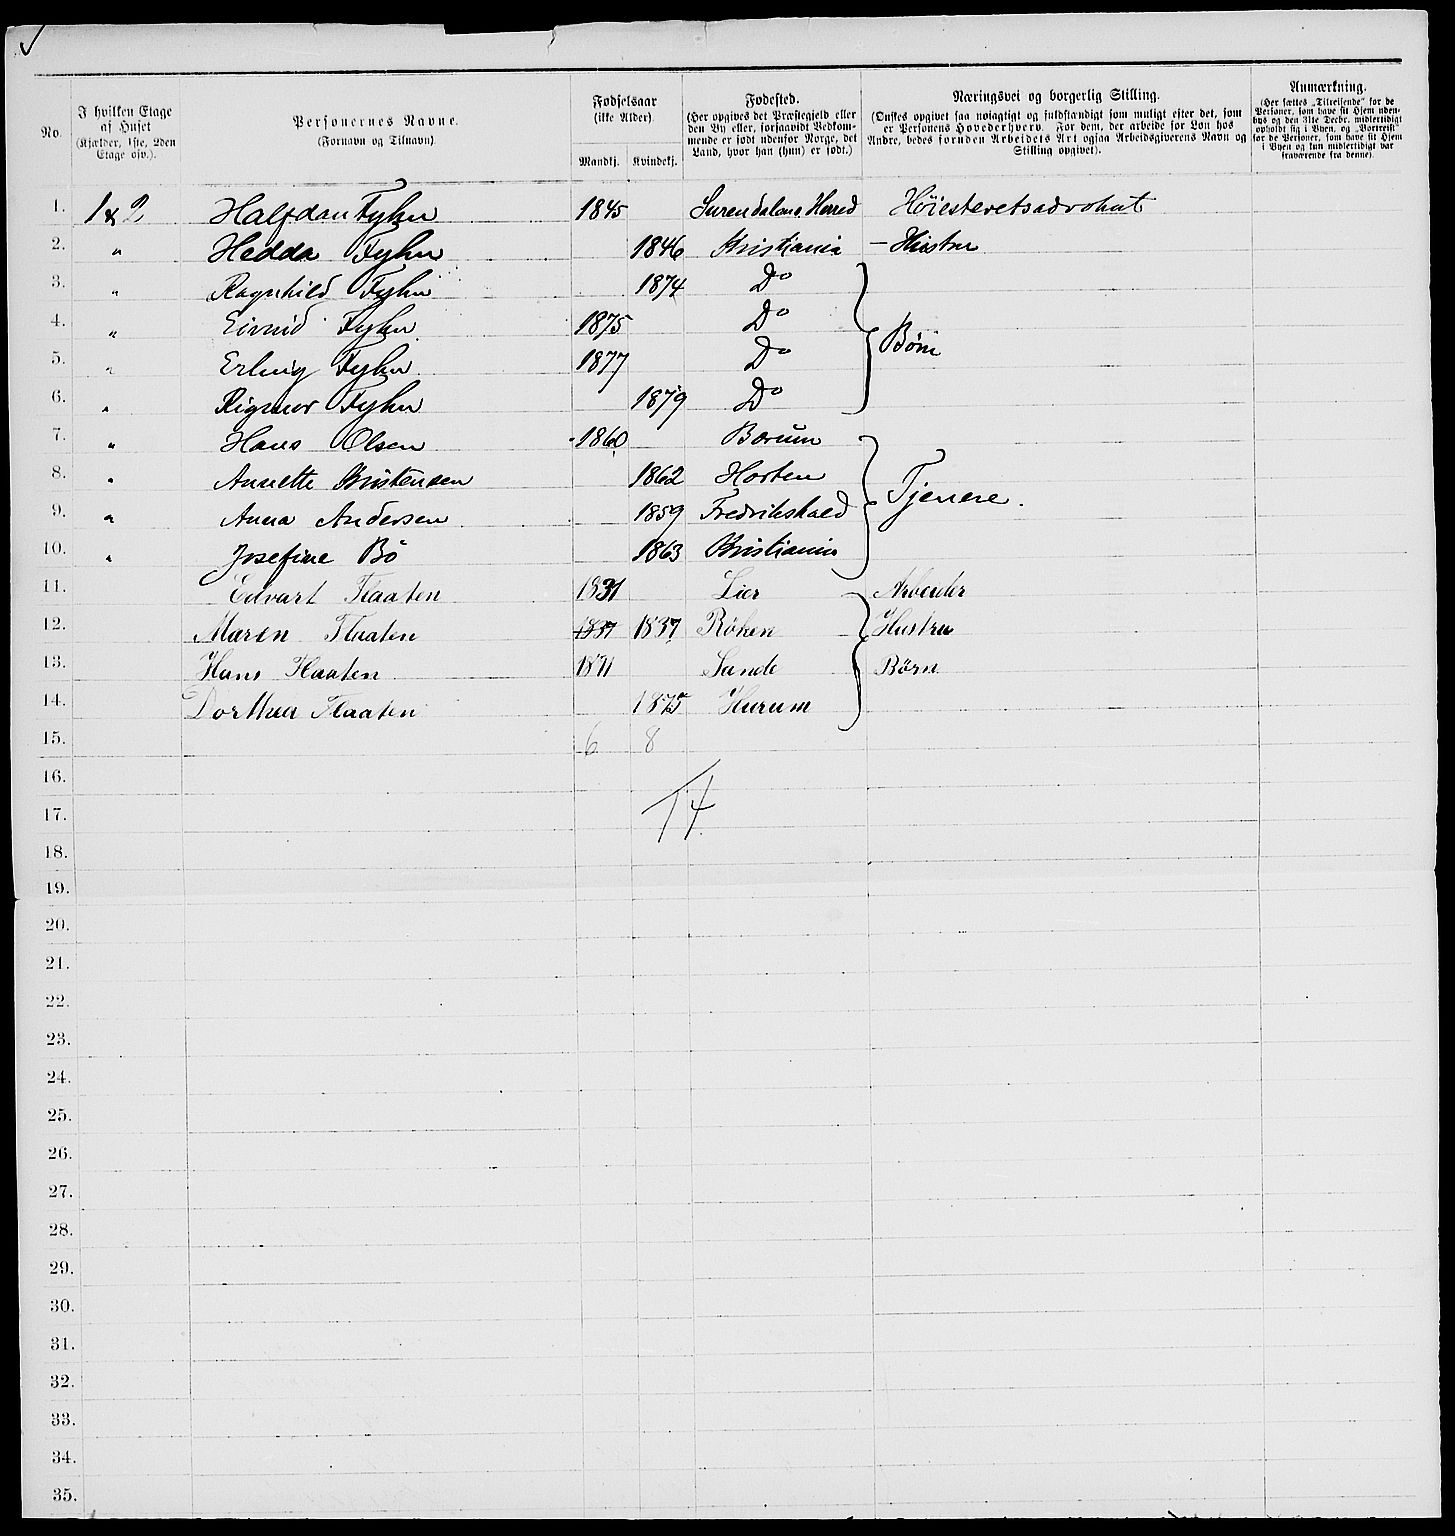 No.
I hvilken Etage
af Huset
(Kjælder, 1ste, 2den
Etage osv.).
Personernes Navne.
(Fornavn og Tilnavn)
Fødselsaar
(ikke Alder).
Mandkj. Kvindekj.
Fødested.
(Her opgives det Præstegjeld eller
den By eller, forsaavidt Vedkom-
mende er født udenfor Norge, det
Land, hvor han (hun) er født.)
Næringsvei og borgerlig Stilling.
(Ønskes opgivet saa nøiagtigt og fuldstændigt som muligt efter det, som
er Personens Hovederhverv. For dem, der arbeide for Løn hos
Andre, bedes foruden Arbeidets Art ogsaa Arbeidsgiverens Navn og
Stilling opgivet).
Anmærkning.
(Her sættes „Tilreisende" for de
Personer, som have sit Hjem uden-
bys og den 31te Decbr. midlertidigt
opholdt sig i Byen, og „Bortreist"
for de Personer, som have sit Hjem
i Byen og kun midlertidigt var
fraværende fra denne).
1. 1 & 2 Halfdan Fyhn 1845 Surendalens Herred Høiesteretsadvokat
2. " Hedda Fyhn 1846 Kristiania – Hustru
3. " Ragnhild Fyhn 1874 Do
4. " Eivind Fyhn 1875 Do
5. " Erling Fyhn 1877 Do Børn
6. " Rigmor Fyhn 1879 Do
7. " Hans Olsen 1860 Bærum
8. " Annette Kristensen 1862 Horten Tjenere.
9. " Anna Andersen 1859 Fredrikshald
10. " Josefine Bö 1863 Kristiania
11. Edvart Flaaten 1831 Lier Arbeider
12. Maren Flaaten 1837 1837 Röken Hustru
13. Hans Flaaten 1871 Sande Børn
14. Dorthea Flaaten 1875 Hurum
15. 6 8
16.
17. 14
18.
19.
20.
21.
22.
23.
24.
25.
26.
27.
28.
29.
30.
31.
32.
33.
34.
35.